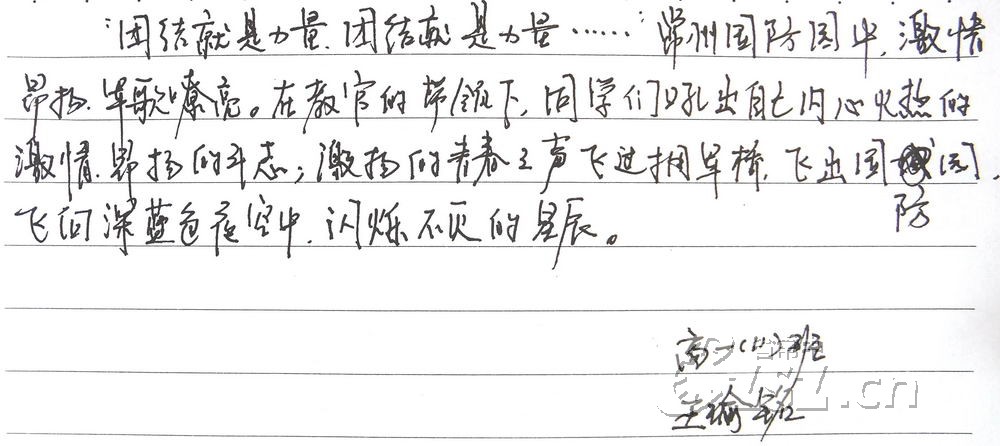 “团结就是力量，团结就是力量……”常州国防园中，激情
昂扬，军歌嘹亮。在教官的带领下，同学们吼出自己内心火热的
激情，昂扬的斗志；激扬的青春之声飞过拥军桥，飞出国防园，
飞向深蓝色夜空中，闪烁不灭的星辰。
高一(11)班
王瑜